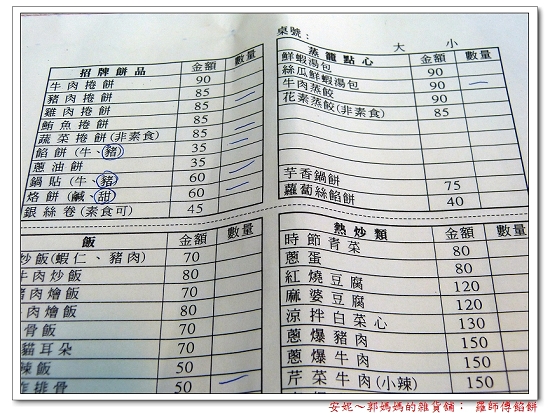 桌號： 大 小
招牌餅品 金額 數量
牛肉捲餅 90
豬肉捲餅 85
雞肉捲餅 85
鮪魚捲餅 85
蔬菜捲餅(非素食) 85
餡餅(牛、豬) 35
蔥油餅 35
鍋貼(牛、豬) 60
烙餅(鹹、甜) 60
銀絲卷(素食可) 45
蒸籠點心 金額 數量
鮮蝦湯包 90
絲瓜鮮蝦湯包 90
牛肉蒸餃 90
花素蒸餃(非素食) 85
芋香鍋餅 75
蘿蔔絲餡餅 40
飯 金額 數量
炒飯(蝦仁、豬肉) 70
牛肉炒飯 80
豬肉燴飯 70
肉燴飯 80
骨飯 70
貓耳朵 70
辣飯 50
炸排骨 50
熱炒類 金額 數量
時節青菜 80
蔥蛋 80
紅燒豆腐 120
麻婆豆腐 120
涼拌白菜心 130
蔥爆豬肉 150
蔥爆牛肉 150
芹菜牛肉(小辣) 150
安妮～郭媽媽的雜貨舖： 羅師傅餡餅